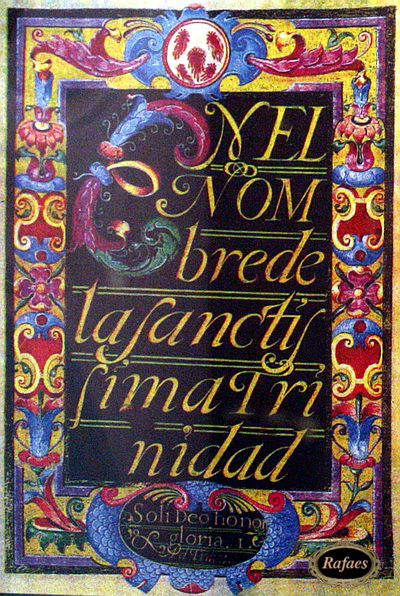 EN EL
NOM
brede
la sanctis
sima Tri
nidad
Soli Deo honor
gloria.
Rafaes